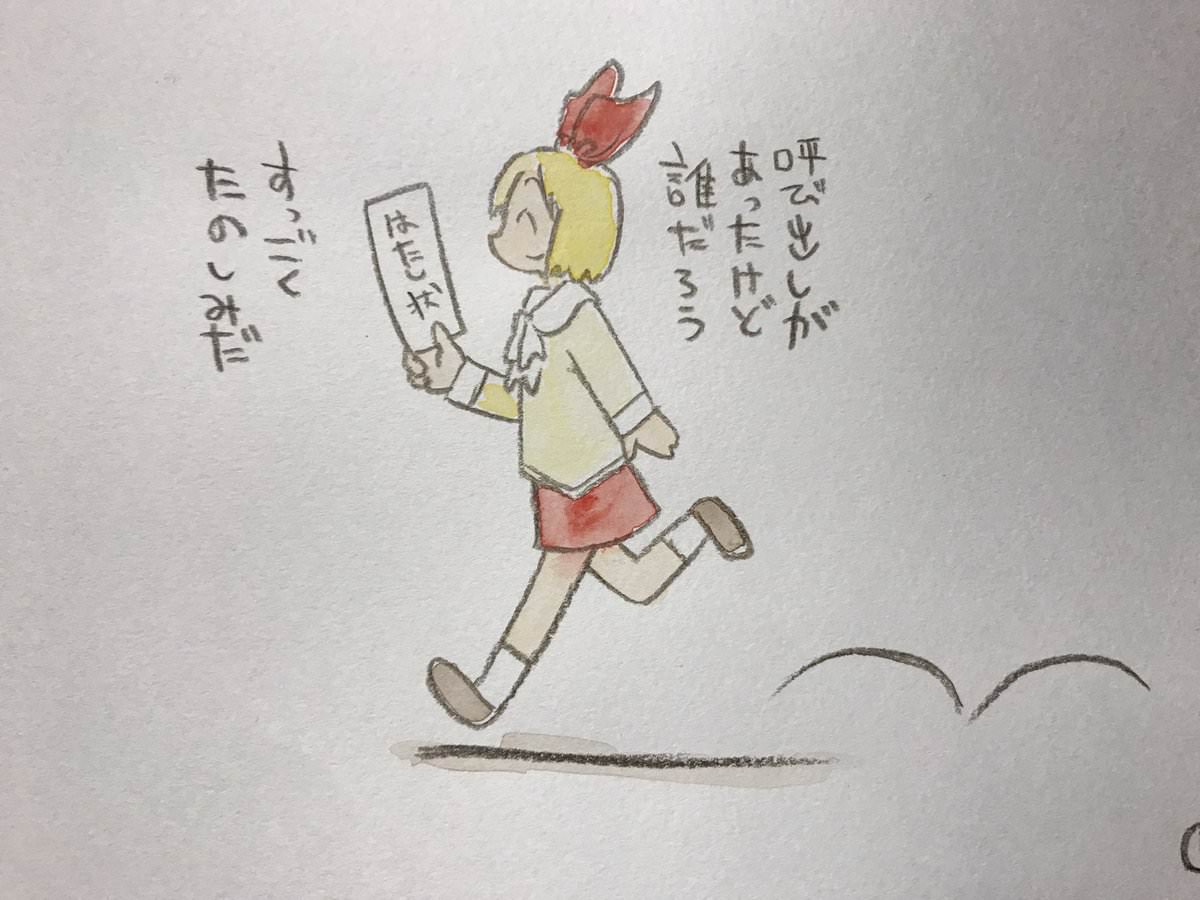 呼び出しが
あったけど
誰だろう
はたし状
すっごく
たのしみだ